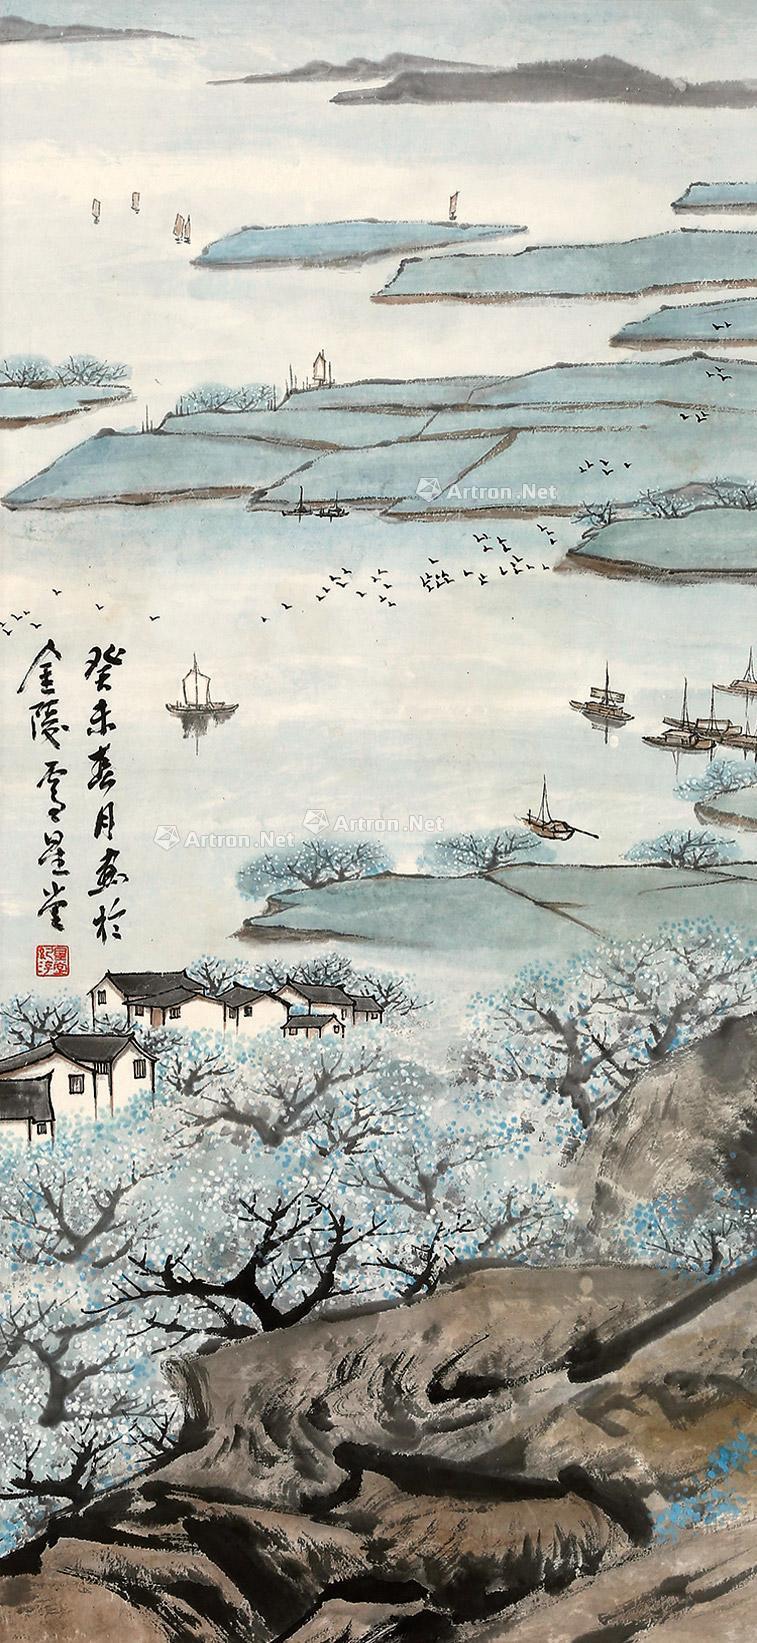 癸未春月画於
金陵卢星堂
Artron.Net
Artron.Net
Artron.Net